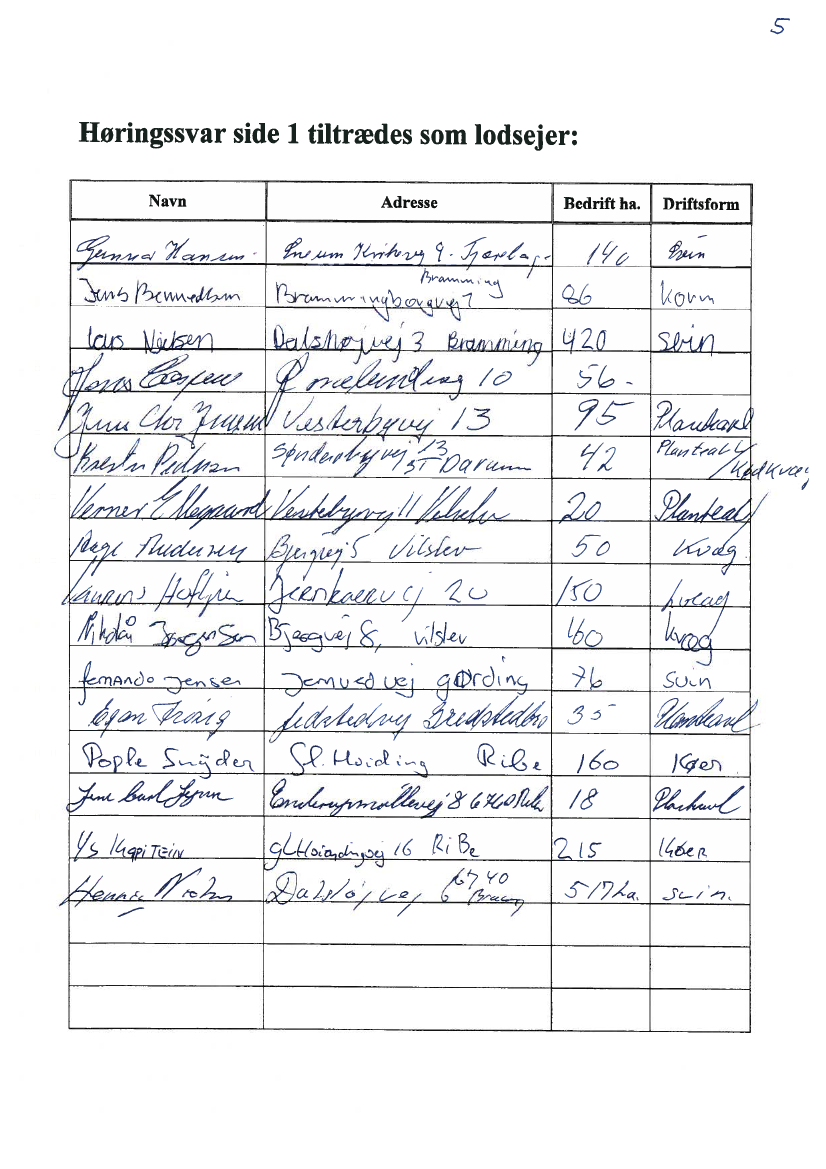 5
Høringssvar side 1 tiltrædes som lodsejer:
Navn Adresse Bedrift ha. Driftsform
Gunnar Hansen 9. 140 Svin
Bramming
Jens Bennedsen Brammingborgvej 7 86 Korn
Lars Nielsen Dalshøjvej 3 Bramming 420 Svin
10 56-
Jens Chr Vesterbyvej 13 95 Planteavl
Sønderbyvej 13 Darum 42 Planteavl / Kødkvæg
Verner Ellegaard Vestebyvej 11 Vilslev 20 Planteavl
Aage Andersen Bjergvej 5 Vilslev 50 Kvæg
Jernkærvej 20 150 Kvæg
Nikolaj Jørgensen Bjergvej 8, Vilslev 160 kvæg
Fernando Jensen Jernvedvej gørding 76 svin
Egon Jedstedvej Gredstedbro 35 Planteavl
Popke Snijder Gl. Hviding Ribe 160 Køer
Jens Carl Enderupmøllevej 8 6760 Ribe 18 Planteavl
Ys Kapitein gl Hvidingvej 16 RiBe 215 Køer
Dalshøjvej 6 6740 Bramming 517 ha. svin.